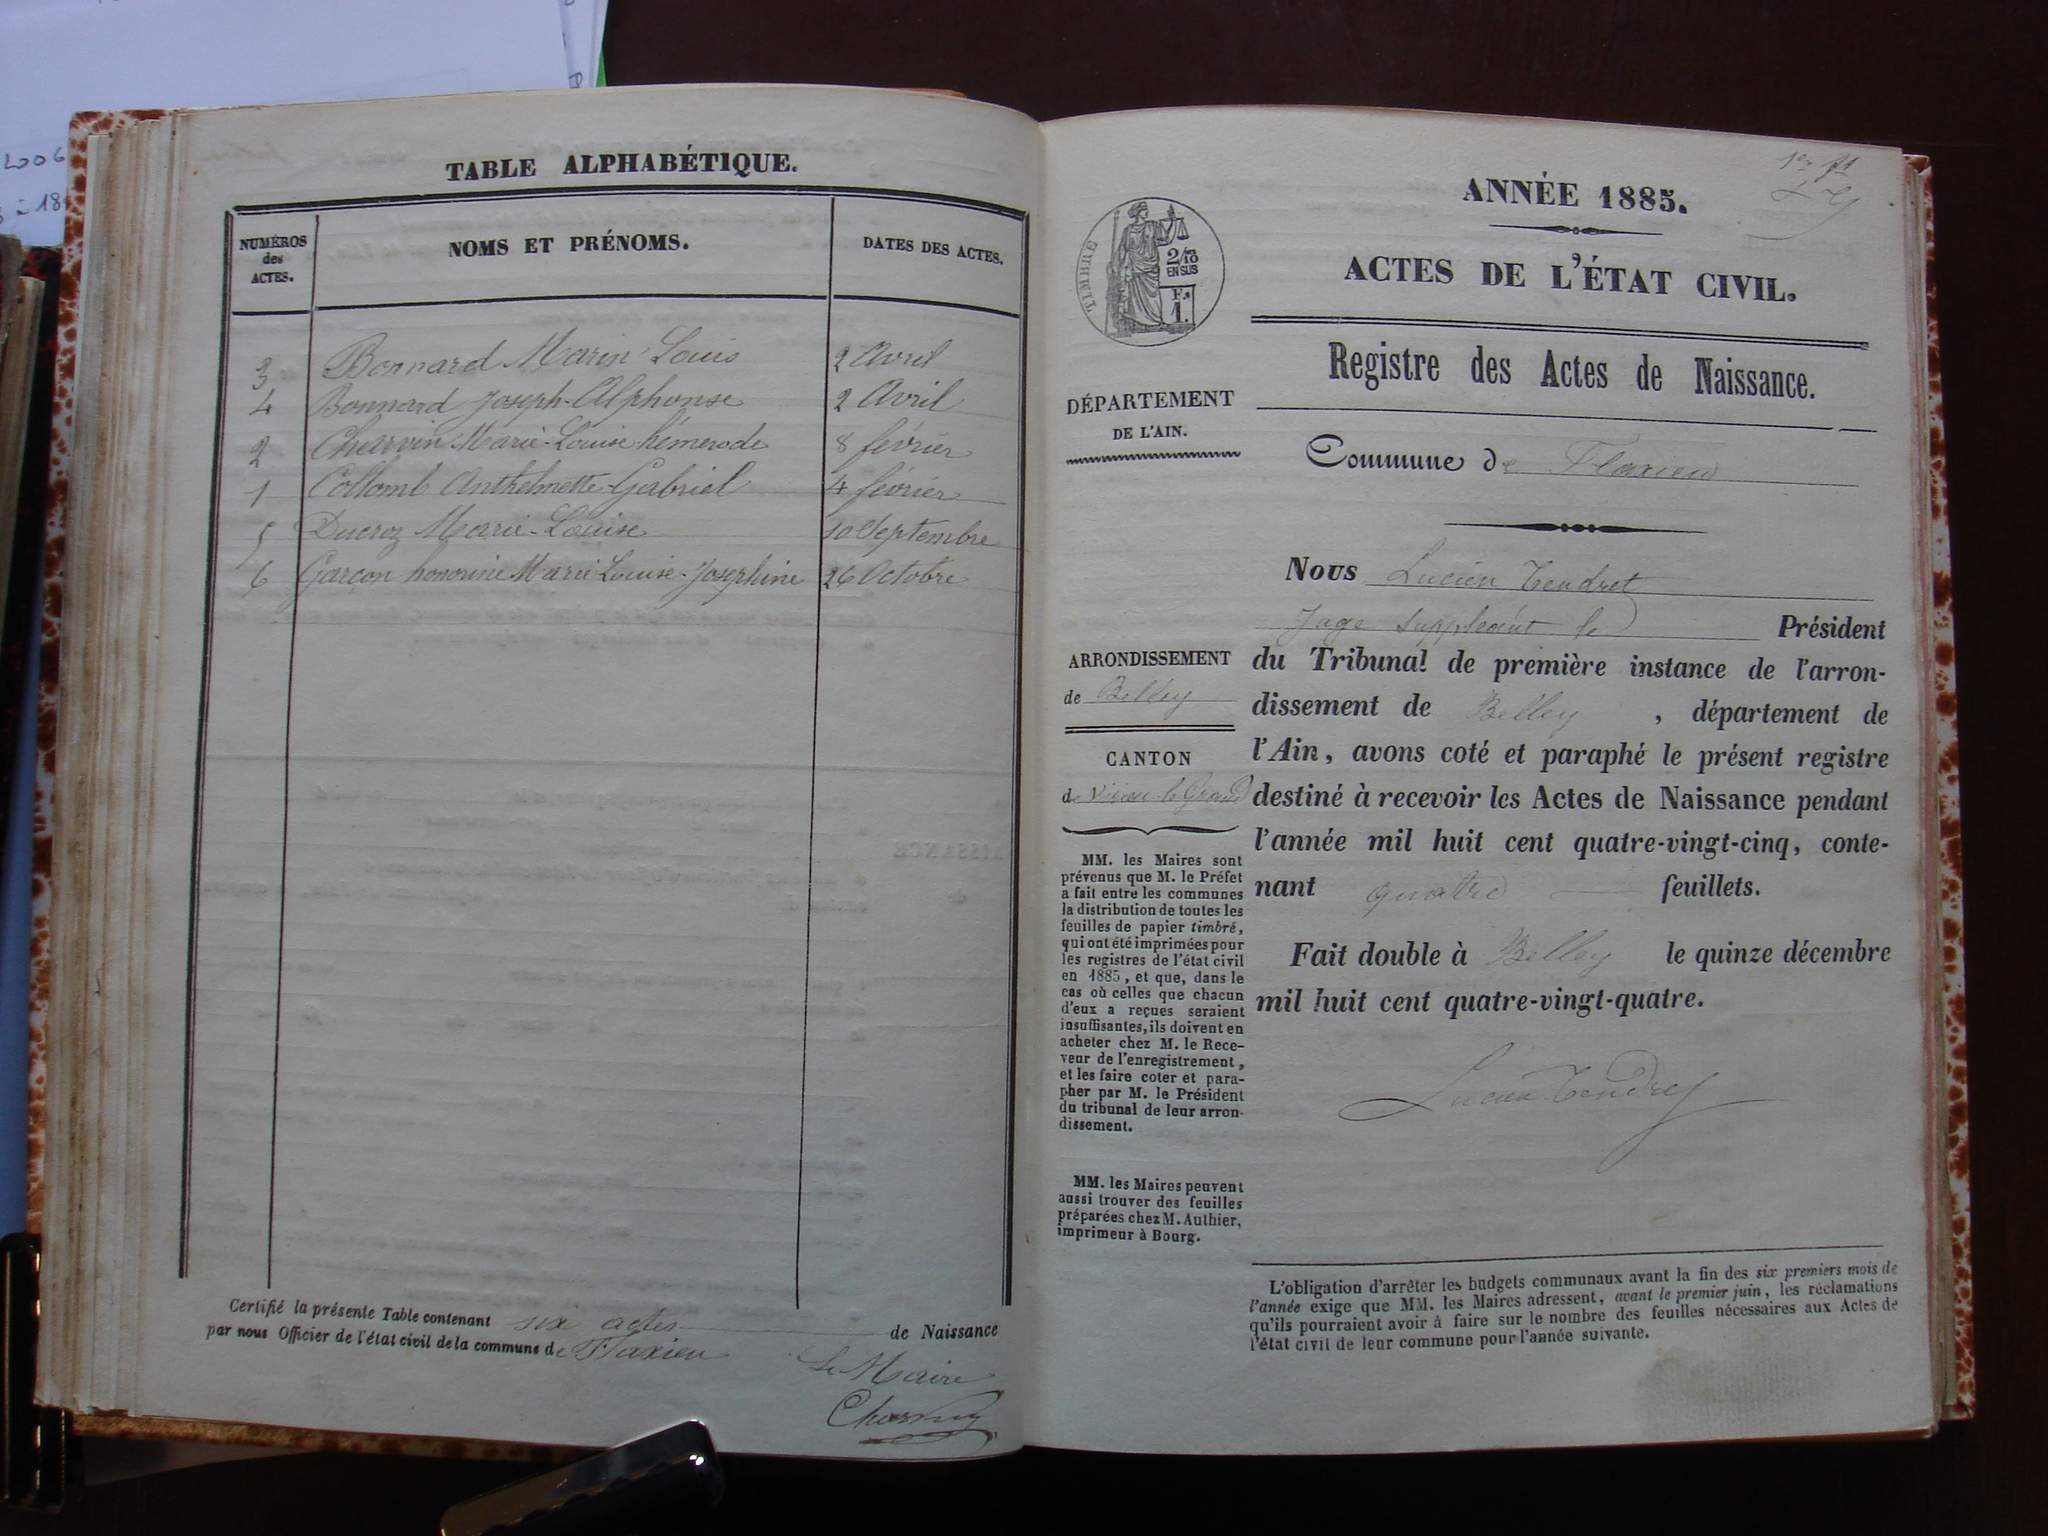 TABLE ALPHABÉTIQUE.
NUMÉROS des ACTES.
NOMS ET PRÉNOMS.
DATES DES ACTES.
3 Bonnard Marin Louis 2 Avril
4 Bonnard Joseph-Alphonse 2 Avril
2 Chervin Marie-Louise hémerode 8 février
1 Collomb Anthelmette-Gabriel 4 février
5 Ducroz Marie-Louise 10 Septembre
6 Garçon honorine Marie Louise-Josephine 26 Octobre
Certifié la présente Table contenant six actes de Naissance
par nous Officier de l'état civil de la commune de Flaxieu
Le Maire
ANNÉE 1885.
ACTES DE L'ÉTAT CIVIL.
TIMBRE
2/10
EN SUS
F.s
1.
Registre des Actes de Naissance.
DÉPARTEMENT
DE L'AIN.
Commune de Flaxieu
Nous Lucien Tendret
Juge suppléant le Président
du Tribunal de première instance de l'arron-
dissement de Belley, département de
l'Ain, avons coté et paraphé le présent registre
destiné à recevoir les Actes de Naissance pendant
l'année mil huit cent quatre-vingt-cinq, conte-
nant quatre feuillets.
Fait double à Belley le quinze décembre
mil huit cent quatre-vingt-quatre.
Lucien Tendret
ARRONDISSEMENT
de Belley
CANTON
de Virieu-le-Grand
MM. les Maires sont
prévenus que M. le Préfet
a fait entre les communes
la distribution de toutes les
feuilles de papier timbré,
qui ont été imprimées pour
les registres de l'état civil
en 1885, et que, dans le
cas où celles que chacun
d'eux a reçues seraient
insuffisantes, ils doivent en
acheter chez M. le Rece-
veur de l'enregistrement,
et les faire coter et para-
pher par M. le Président
du tribunal de leur arron-
dissement.
MM. les Maires peuvent
aussi trouver des feuilles
préparées chez M. Authier,
imprimeur à Bourg.
L'obligation d'arrêter les budgets communaux avant la fin des six premiers mois de
l'année exige que MM. les Maires adressent, avant le premier juin, les réclamations
qu'ils pourraient avoir à faire sur le nombre des feuilles nécessaires aux Actes de
l'état civil de leur commune pour l'année suivante.